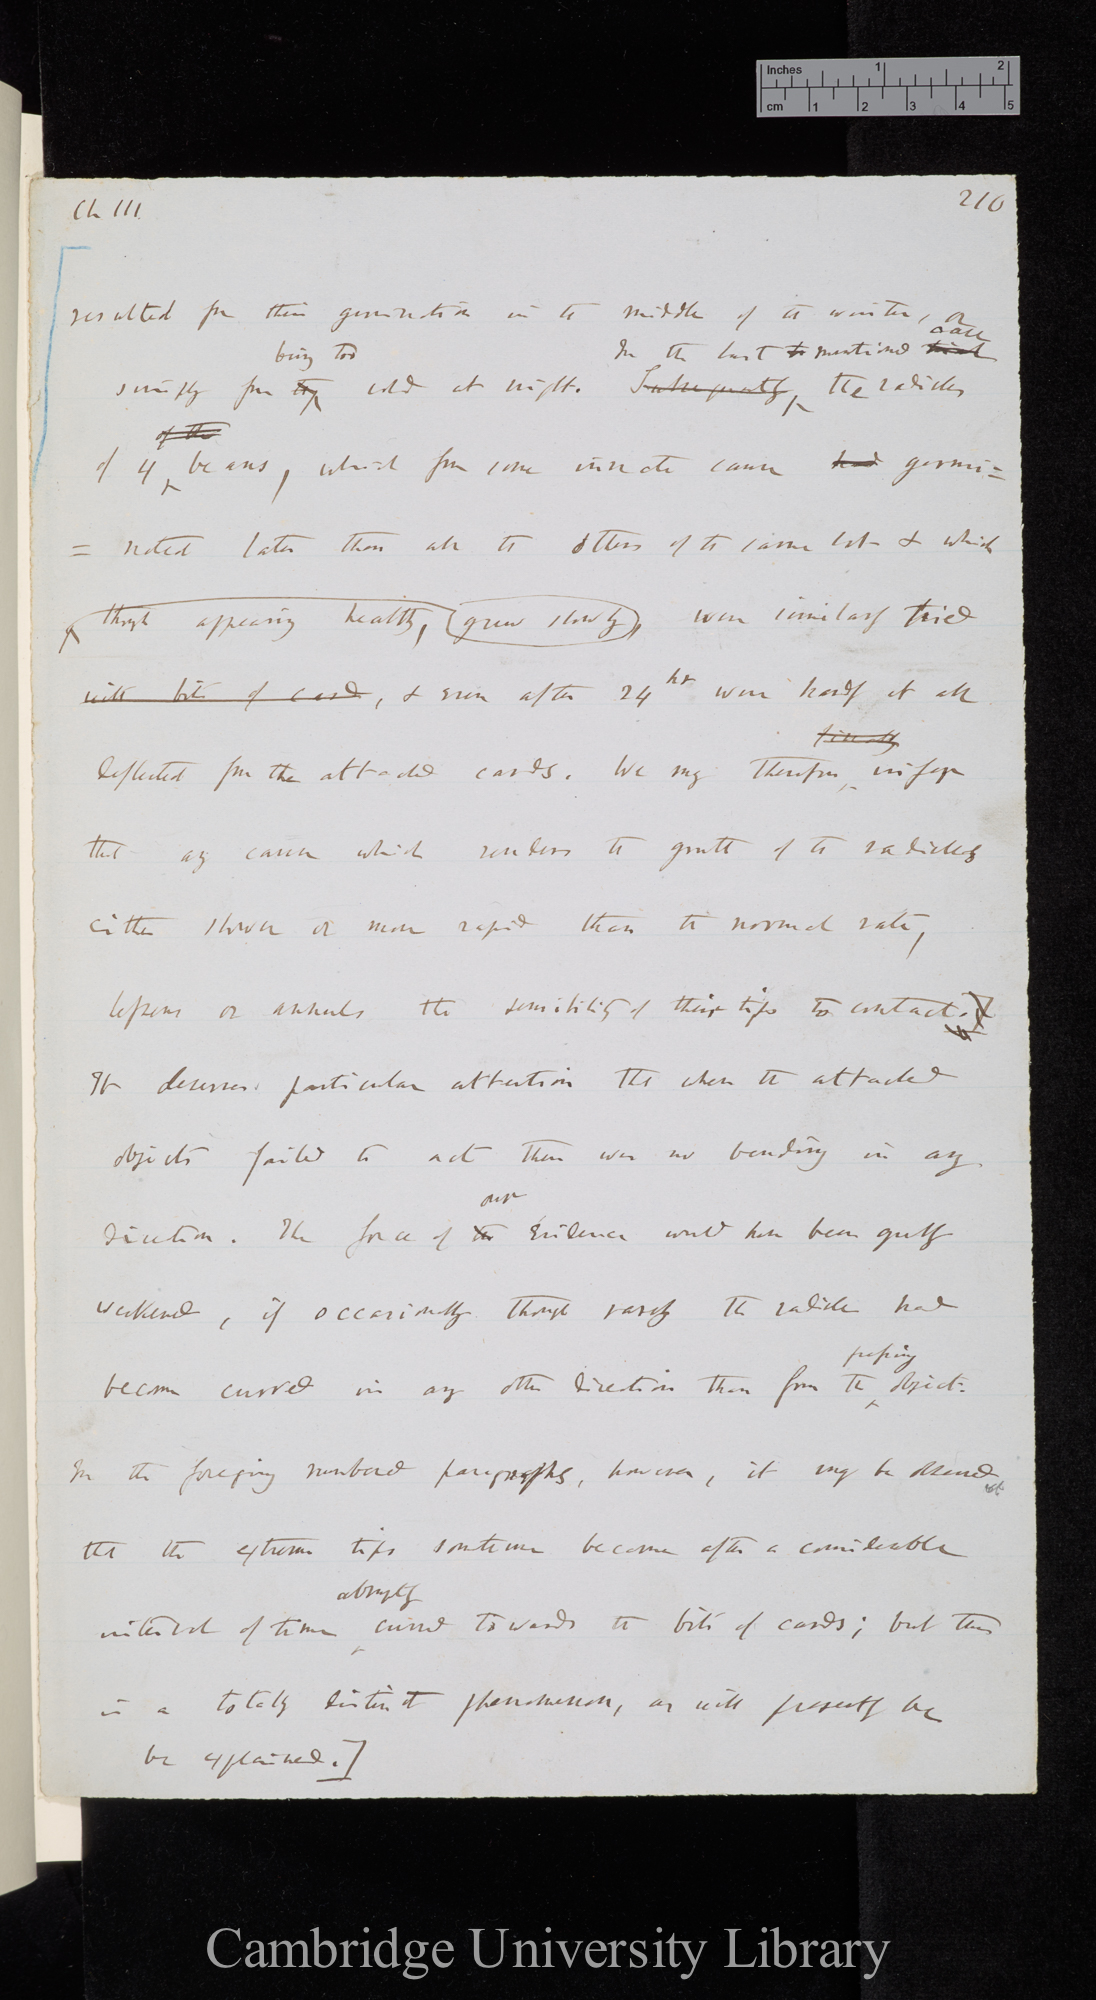 Inches 1 2
cm 1 2 3 4 5
Ch III
210
resulted from their germination in the middle of the winter, or
being too In the last to mentioned trial case
simply from the cold at night. Subsequently, the radicles
of the
of 4 beans, which from some innate cause had germi=
= nated later than all the others of the same lot & which
though appearing healthy, grew slowly, were similarly tried
with bits of card, & even after 24 hr were hardly at all
deflected from the attached cards. We may therefore infer
finally
that any cause which renders the growth of the radicles
either slower or more rapid than the normal rate,
lessens or annuls the sensibility of their tips to contact.]
It deserves particular attention that when the attached
objects failed to act there was no bending in any
our
direction. The force of the evidence would have been greatly
weakened, if occasionally though rarely the radicles had
pressing
become curved in any other direction than from the object.
In the foregoing numbered paragraphs, however, it may be observed
that the extreme tips sometimes become after a considerable
abruptly
interval of time curved towards the bits of cards; but this
is a totally distinct phenomenon, as will presently be
be explained.]
Cambridge University Library